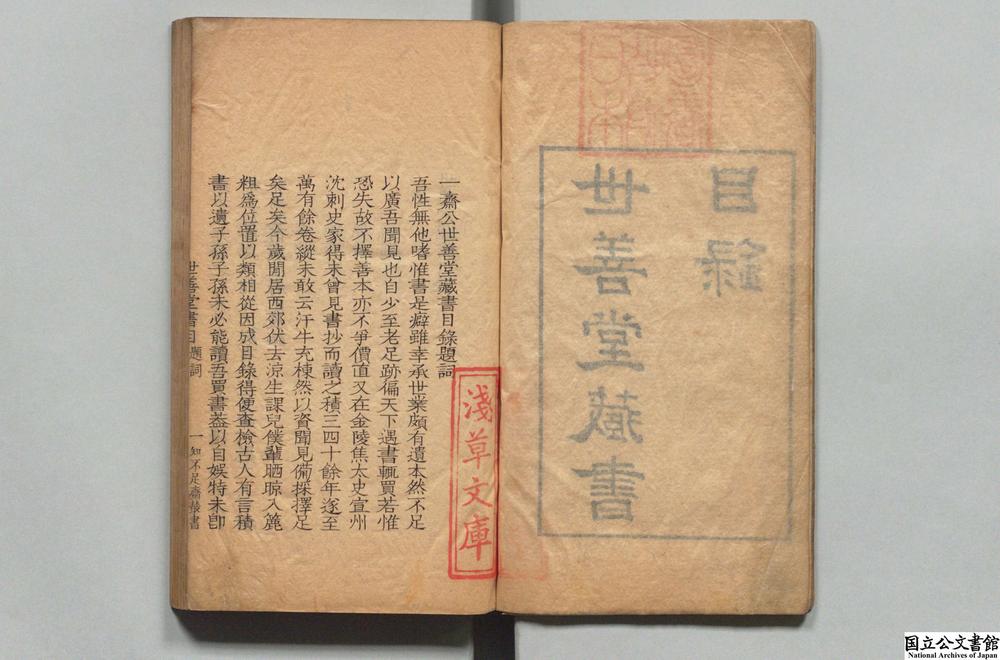 世善堂藏書
目錄
一齋公世善堂藏書目錄題詞
吾性無他嗜惟書是癖雖幸承世業頗有遺本然不足
以廣吾聞見也自少至老足跡徧天下遇書輒買若惟
恐失故不擇善本亦不爭價直又在金陵焦太史宣州
沈刺史家得未曾見書抄而讀之積三四十餘年遂至
萬有餘卷縱未敢云汗牛充棟然以資聞見備採擇足
矣足矣今歲閒居西郊伏去涼生課兒僕輩晒晾入簏
粗爲位置以類相從因成目錄得便查檢古人有言積
書以遺子孫子孫未必能讀吾買書葢以自娛特未卽
世善堂書目 題詞
一 知不足齋叢書
淺草文庫
国立公文書館
National Archives of Japan